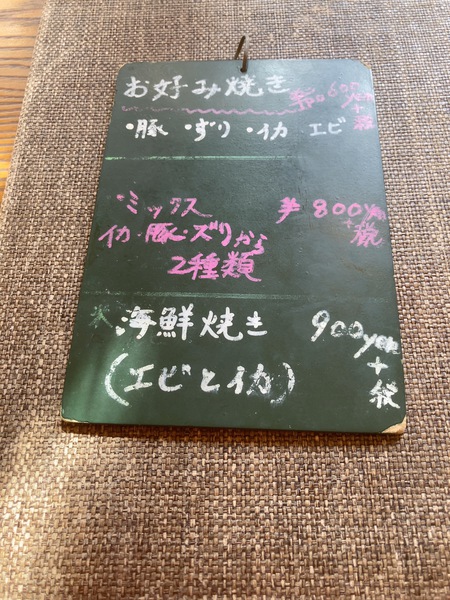 お好み焼き 600yen+税
・豚 ・ずり ・イカ エビ
・ミックス 800yen+税
イカ・豚・ズリから
2種類
海鮮焼き 900yen+税
(エビとイカ)